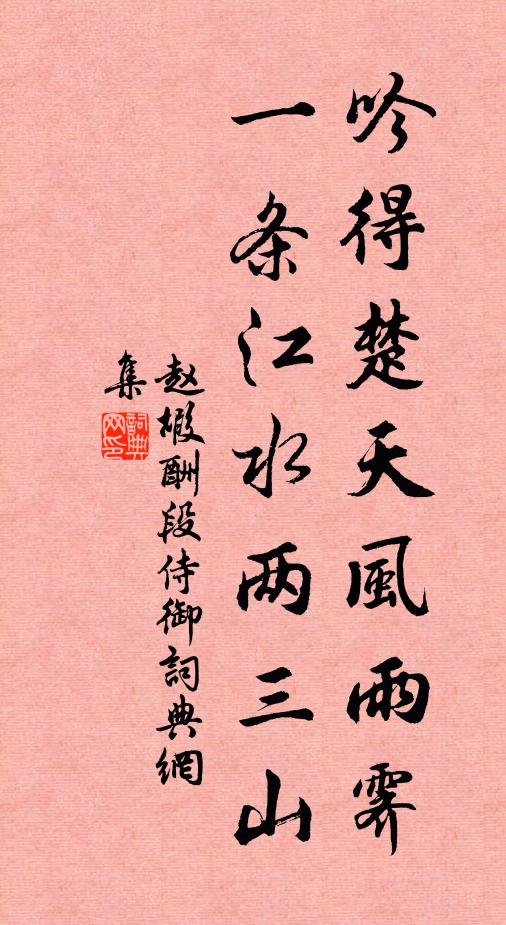 吟得楚天風雨霽
一条江水两三山
赵嘏酬段侍御詞典網
集
詞典
网印